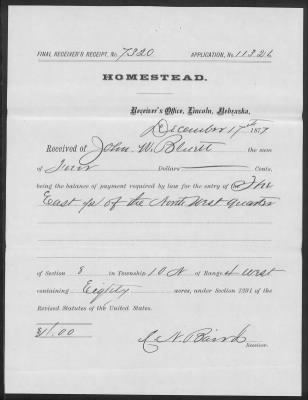 FINAL RECEIVER'S RECEIPT, No. 7320 APPLICATION, No. 11326
HOMESTEAD.
Receiver's Office, Lincoln, Nebraska.
December 17th 1877
Received of John W. the sum
of Four Dollars Cents,
being the balance of payment required by law for the entry of The
East ½ of the North West quarter
of Section 8 in Township 10 N of Range 4 West
containing Eighty acres, under Section 2291 of the
Revised Statutes of the United States.
$4.00
C. N. Baird
Receiver.